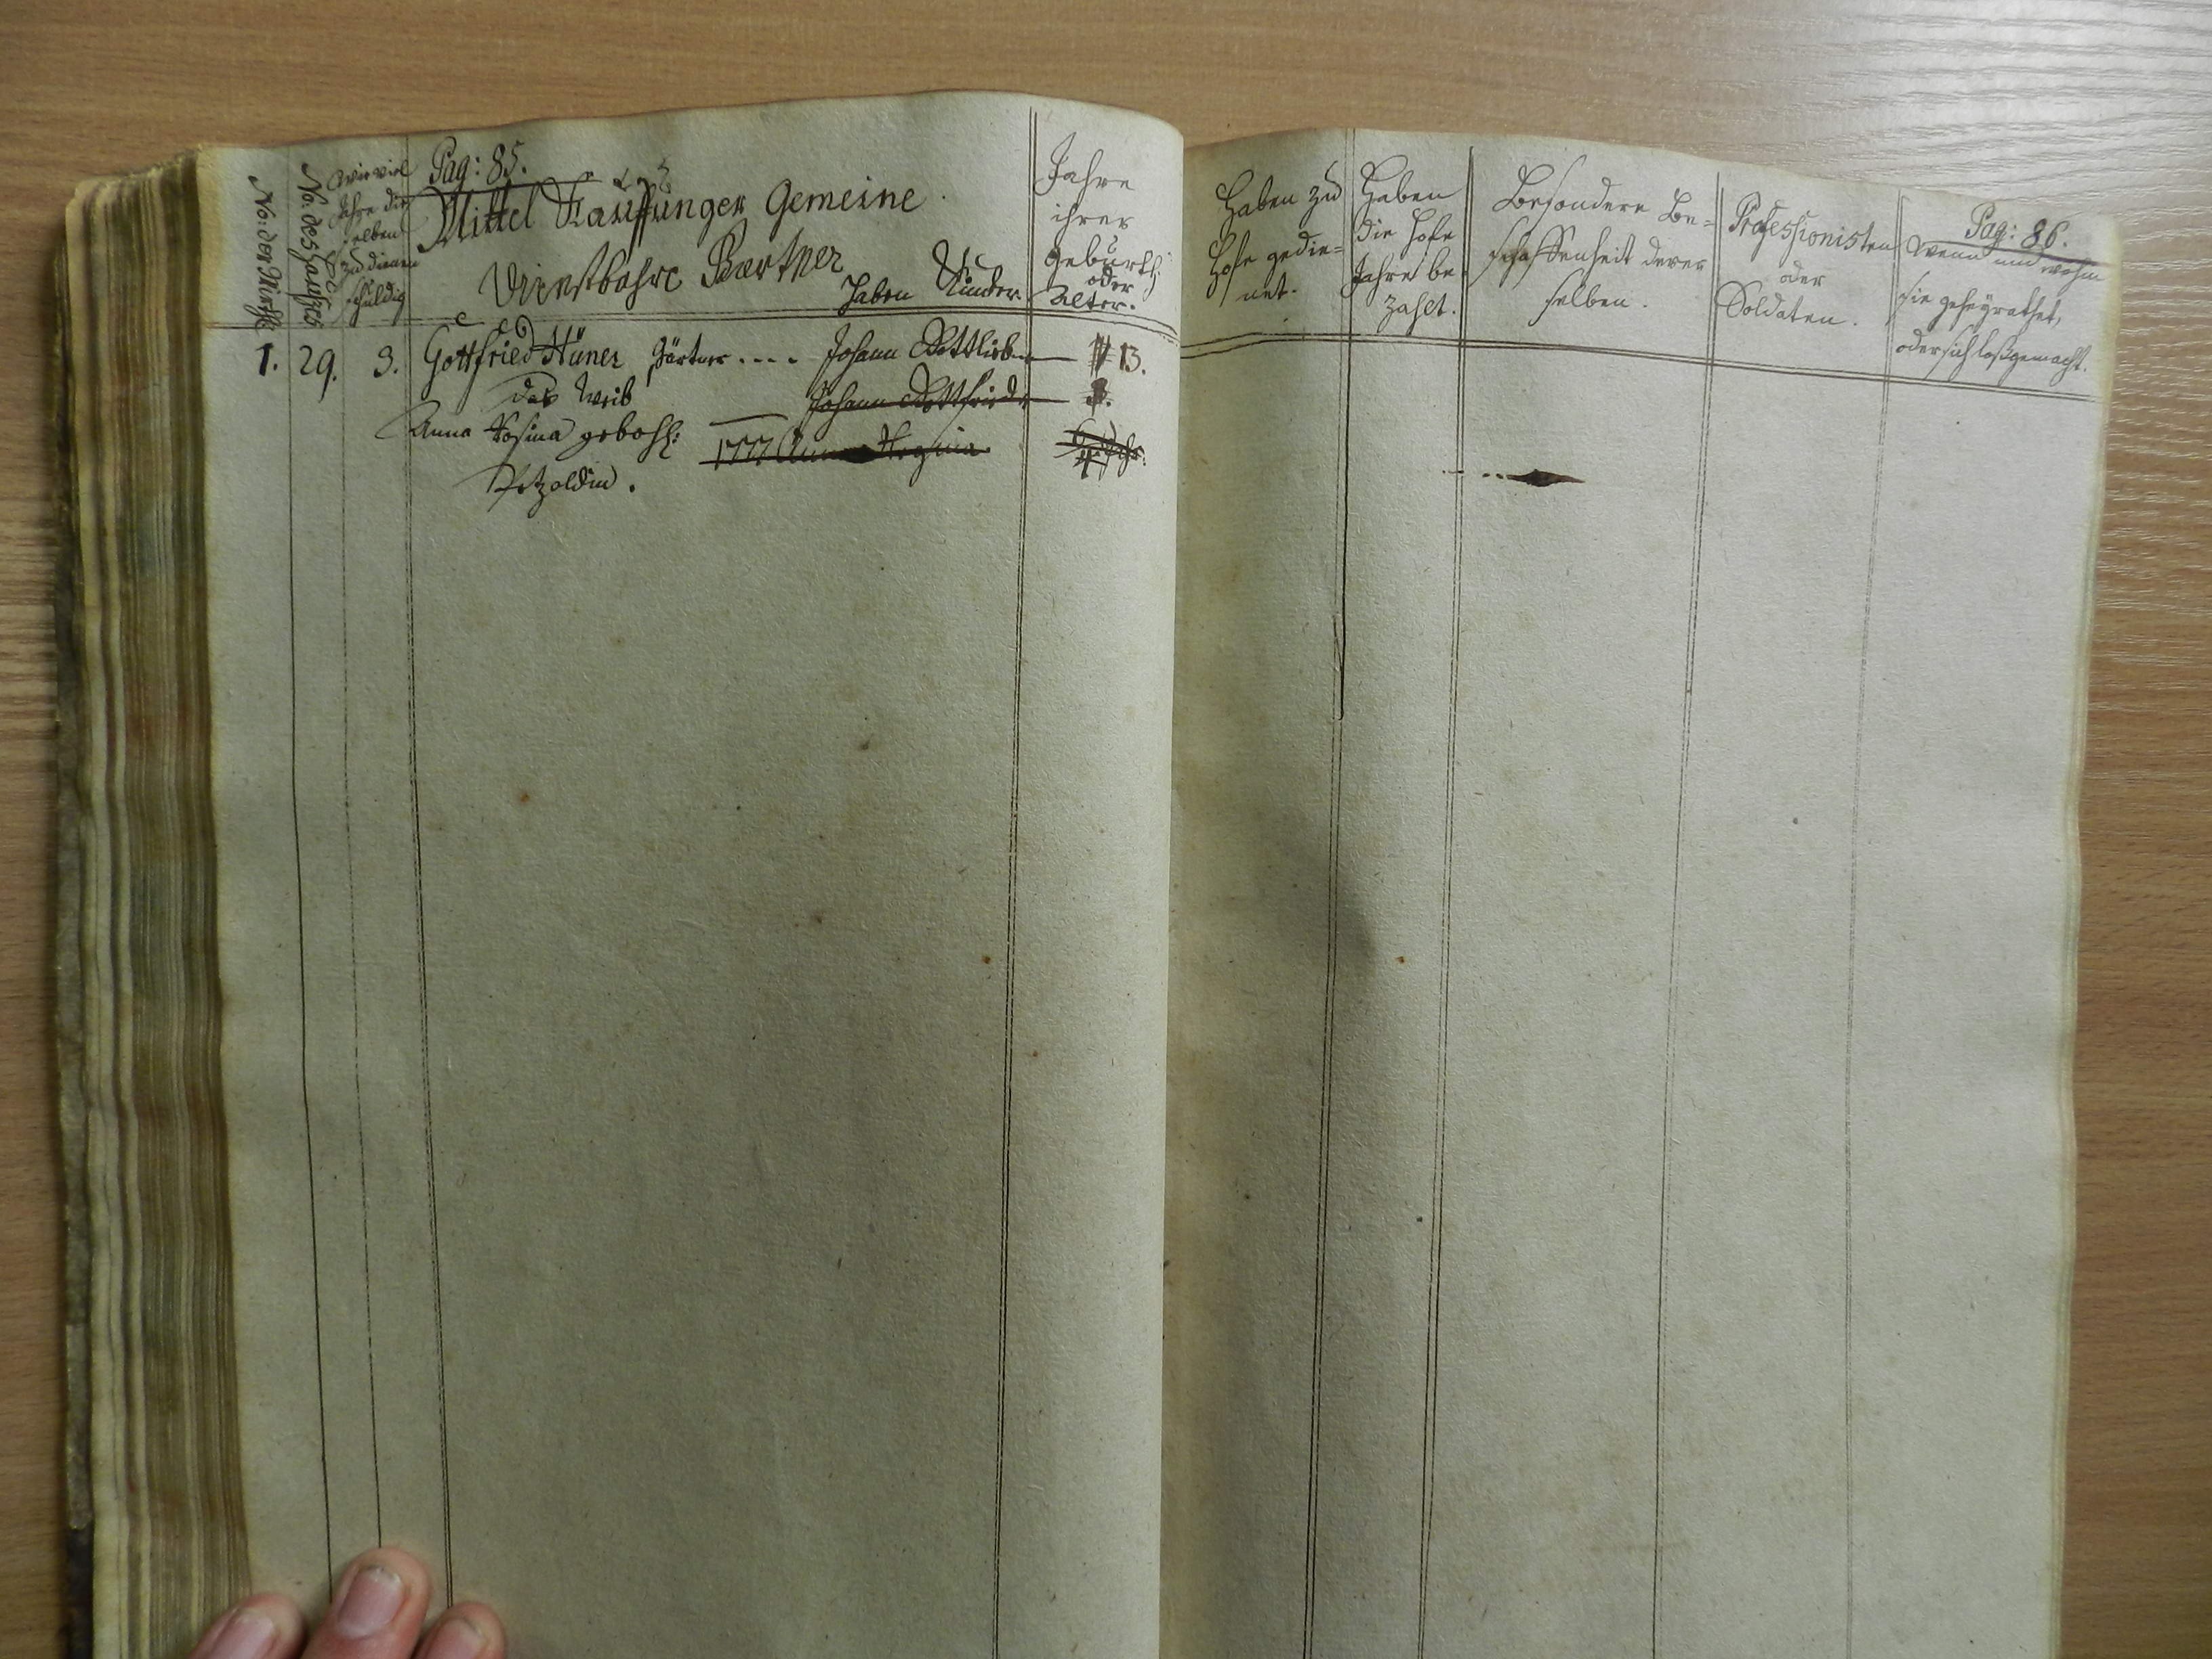 No: der Wirthe
No: des Haußes
Wie viel
Jahre die
selben
zu dienen
schuldig
Pag: 85.
Mittel Kauffunger Gemeine
Dienstbahre Gaertner
Haben Kinder
Jahre
ihrer
Geburth
oder
Alter.
1. 29. 3. Gottfried Hüner Gärtner .... Johann Gottlieb 13.
das Weib Johann Gottfried
Anna Rosina gebohr: 1777 Anna Regina
Petzoldin.
Haben zu
Hofe gedie=
net.
Haben
die Hofe
Jahre be
zahlt.
Besondere Be=
schaffenheit derer
selben.
Professionisten
oder
Soldaten.
Pag: 86.
Wenn und wohin
sie geheyrathet,
oder sich loßgemacht.